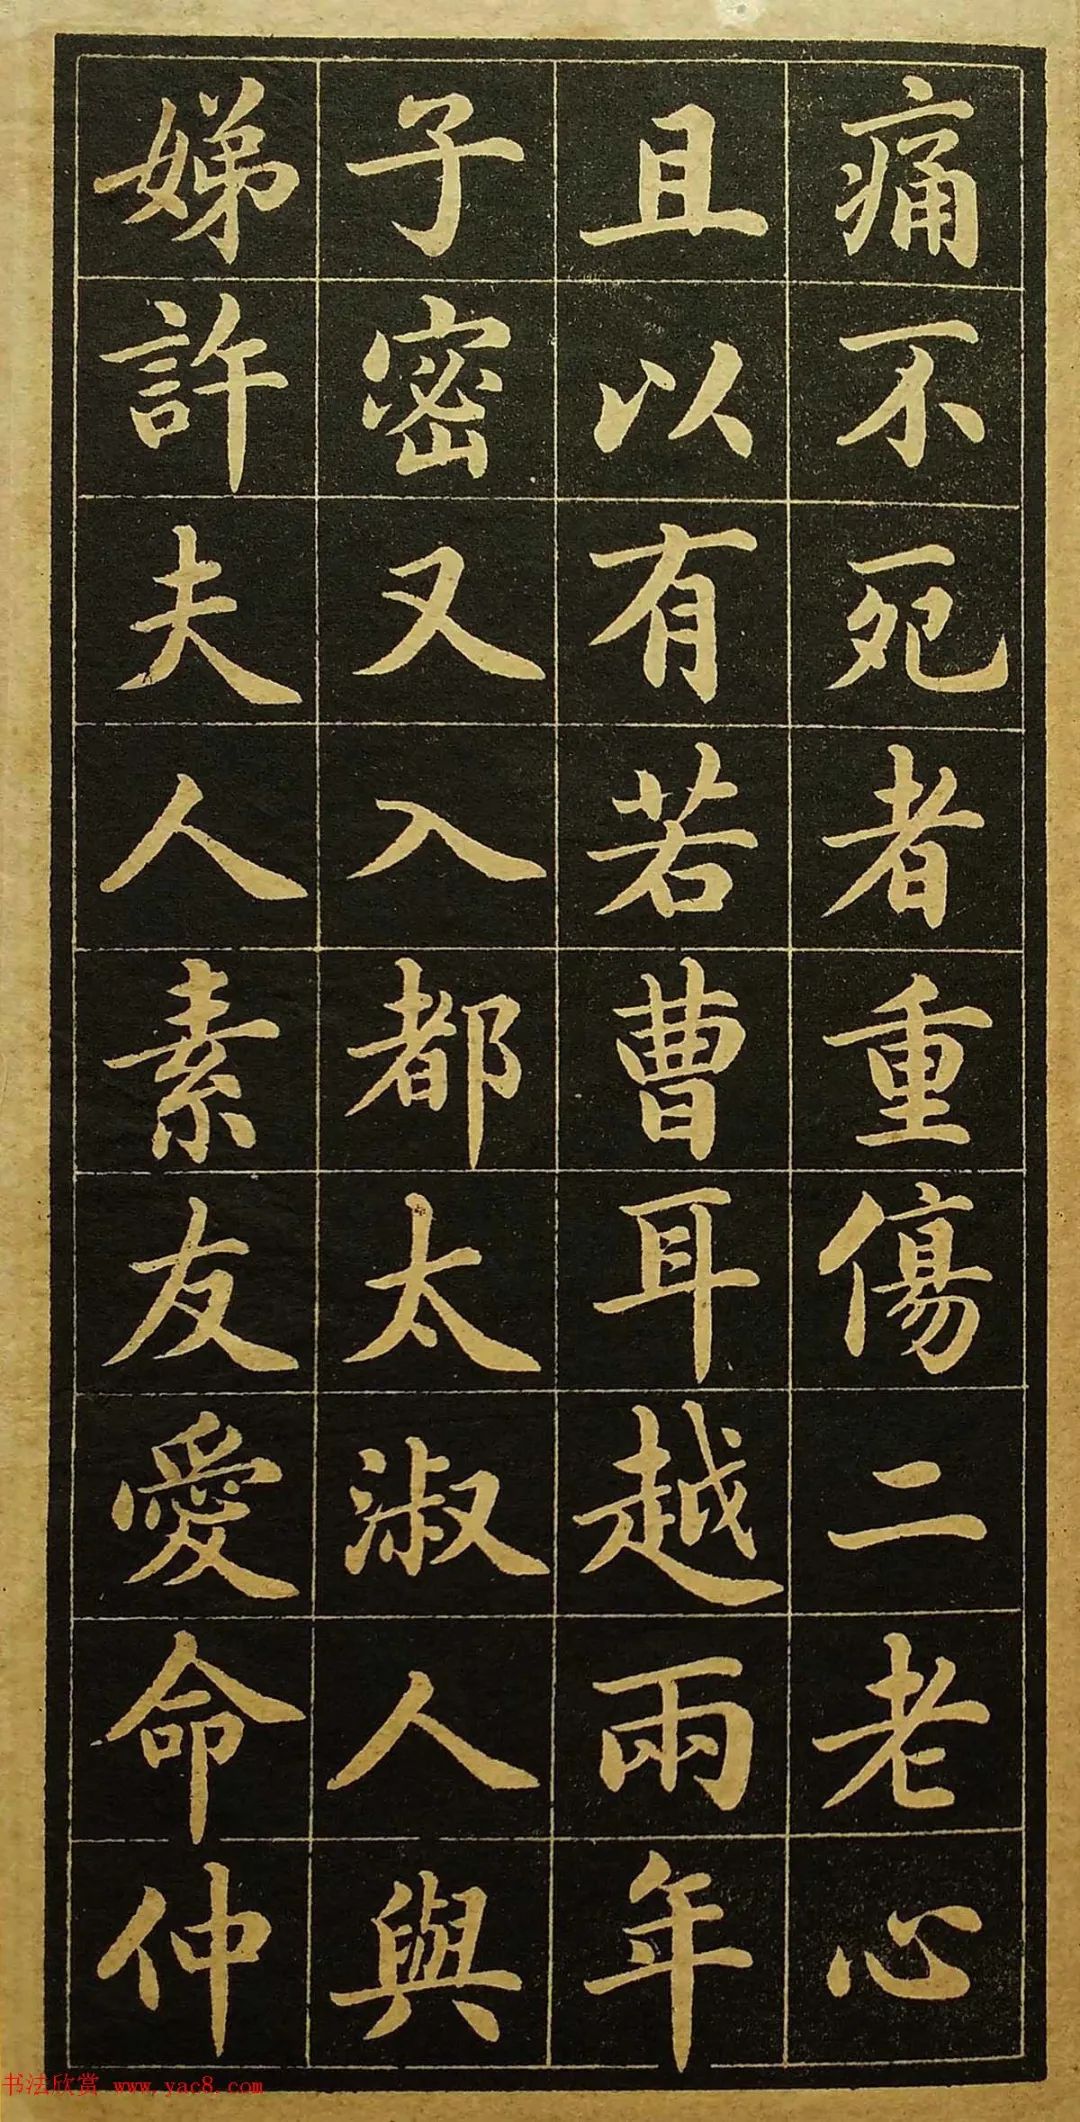 痛不死者重傷二老心
且以有若曹耳越兩年
子密又入都太淑人與
娣許夫人素友愛命仲
书法欣赏 www.yac8.com